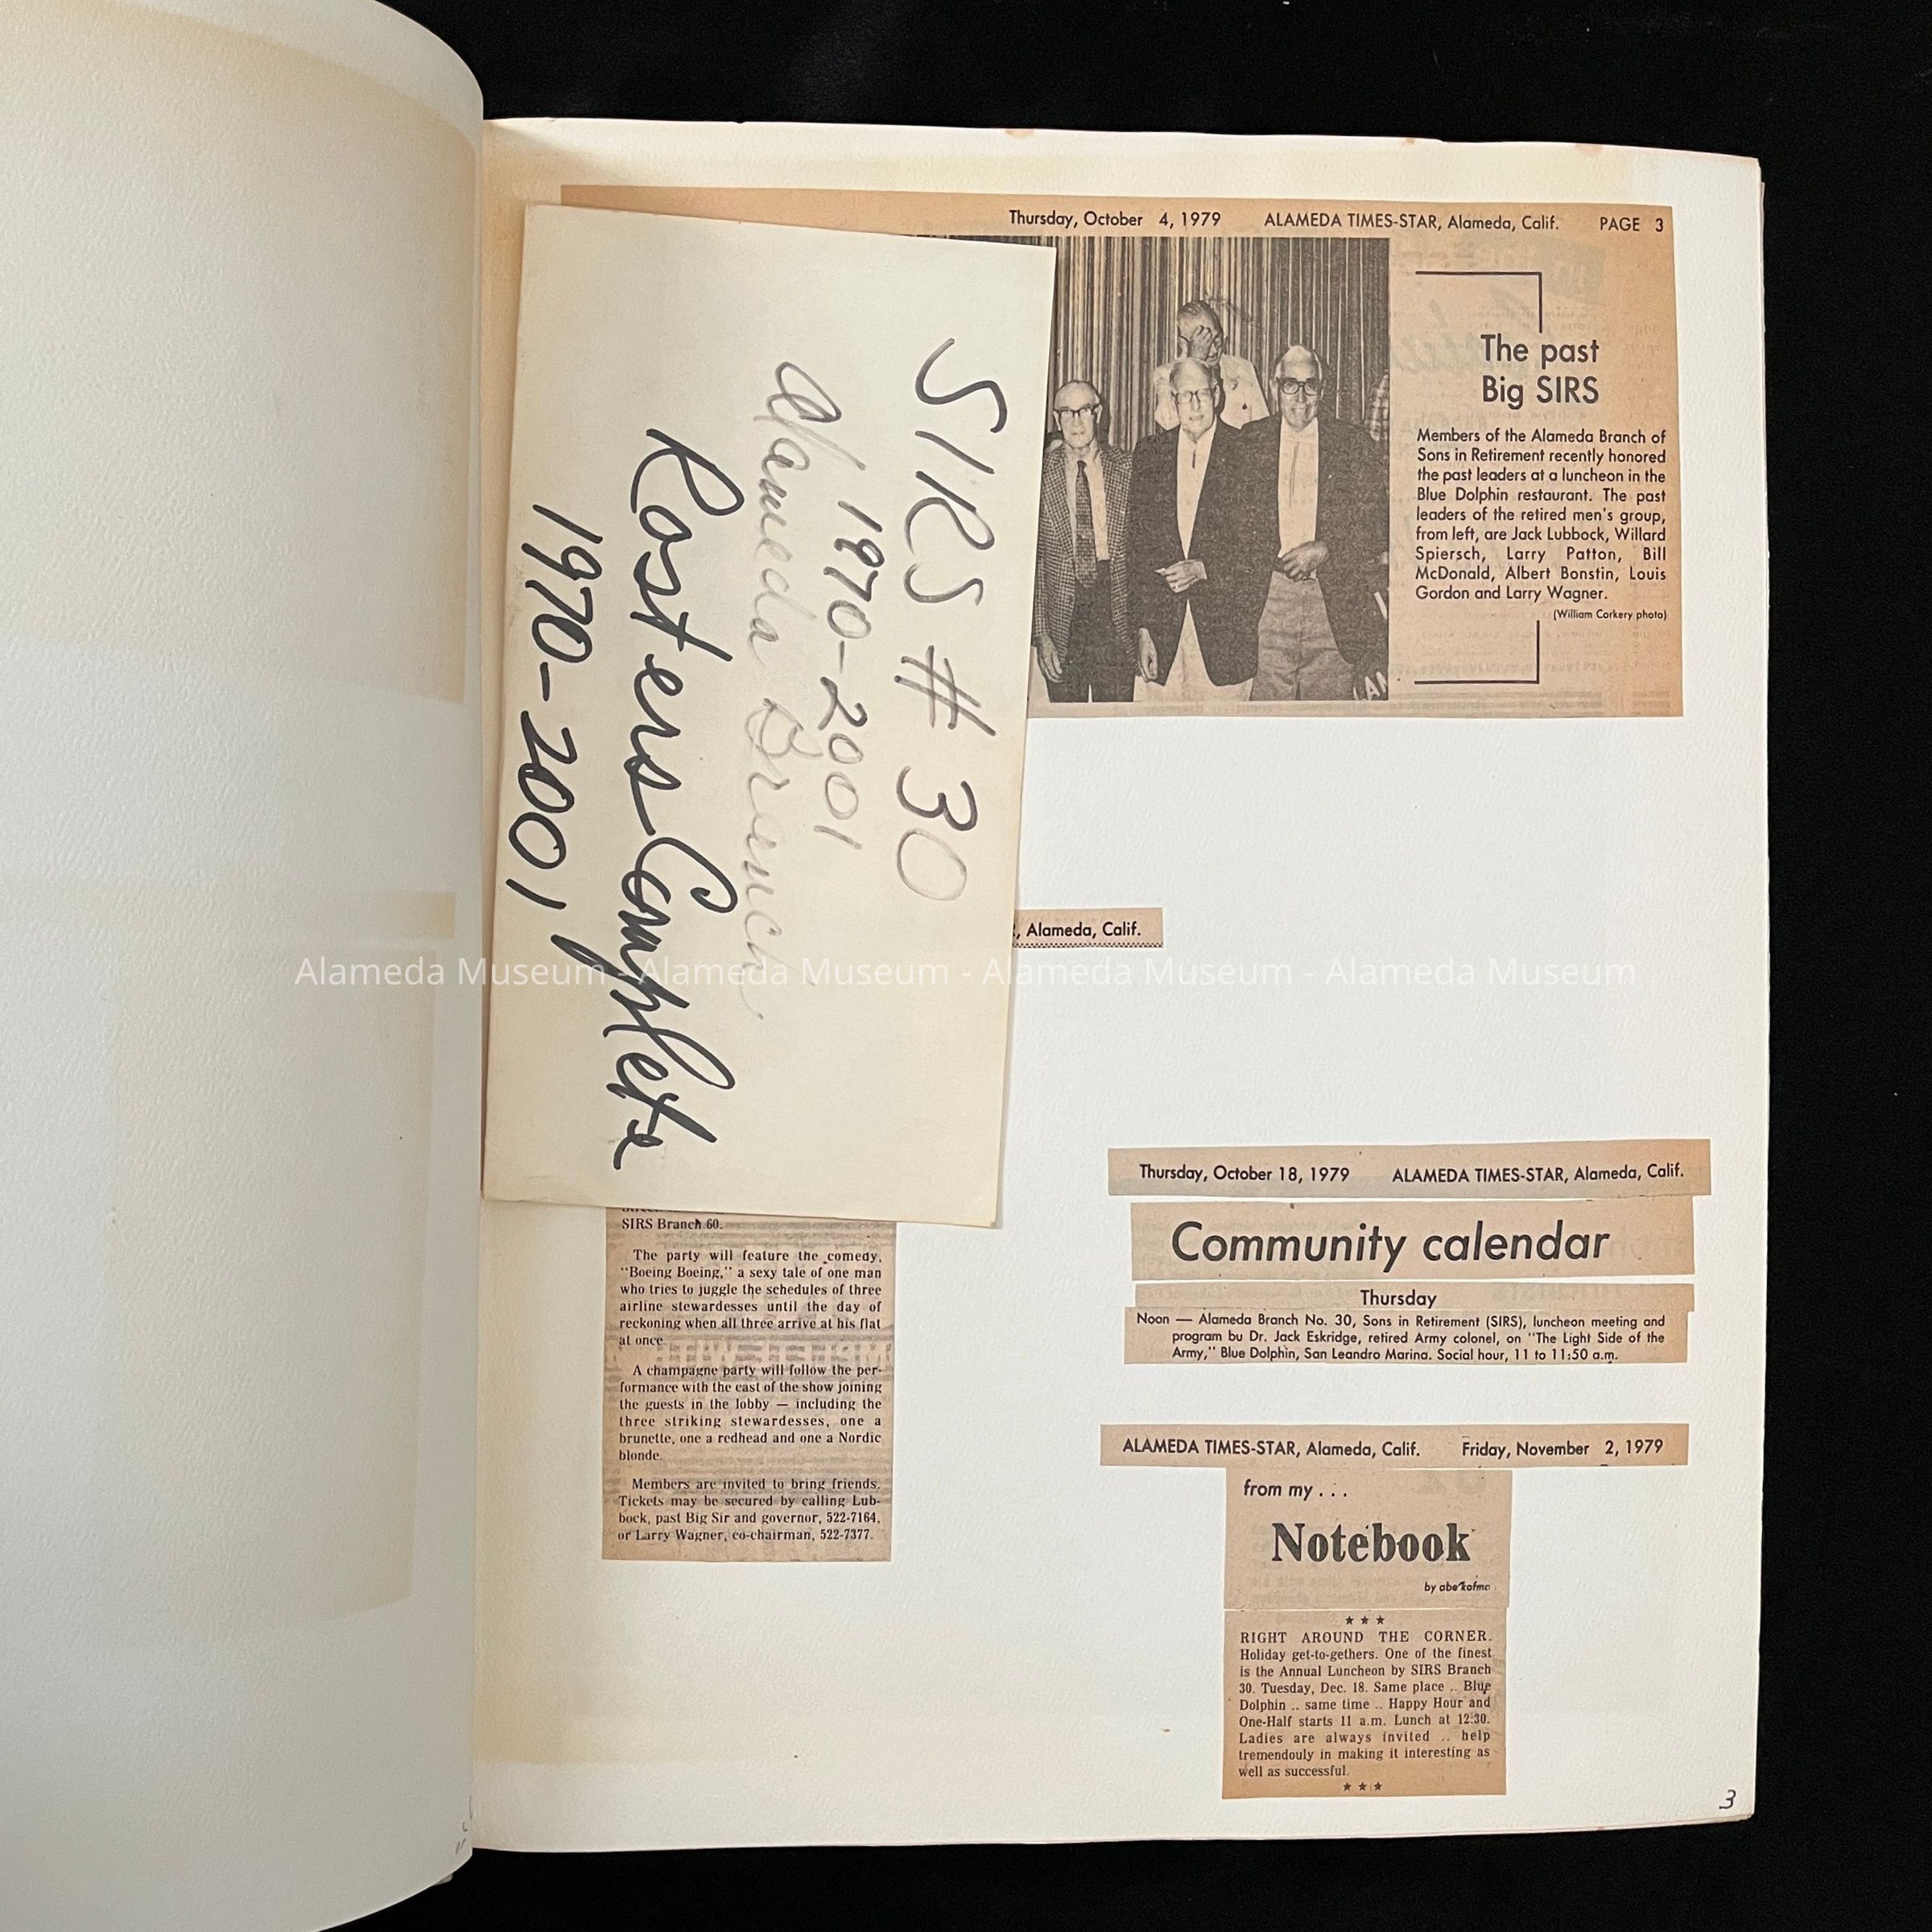 Thursday, October 4, 1979 ALAMEDA TIMES-STAR, Alameda, Calif. PAGE 3
The past
Big SIRS
Members of the Alameda Branch of
Sons in Retirement recently honored
the past leaders at a luncheon in the
Blue Dolphin restaurant. The past
leaders of the retired men's group,
from left, are Jack Lubbock, Willard
Spiersch, Larry Patton, Bill
McDonald, Albert Bonstin, Louis
Gordon and Larry Wagner.
(William Corkery photo)
SIRS # 30
1970-2001
Alameda Branch
Rosters Complete
1970-2001
, Alameda, Calif.
Alameda Museum - Alameda Museum - Alameda Museum - Alameda Museum
SIRS Branch 60.
The party will feature the comedy,
"Boeing Boeing," a sexy tale of one man
who tries to juggle the schedules of three
airline stewardesses until the day of
reckoning when all three arrive at his flat
at once.
A champagne party will follow the per-
formance with the cast of the show joining
the guests in the lobby — including the
three striking stewardesses, one a
brunette, one a redhead and one a Nordic
blonde.
Members are invited to bring friends.
Tickets may be secured by calling Lub-
bock, past Big Sir and governor, 522-7164,
or Larry Wagner, co-chairman, 522-7377.
Thursday, October 18, 1979 ALAMEDA TIMES-STAR, Alameda, Calif.
Community calendar
Thursday
Noon — Alameda Branch No. 30, Sons in Retirement (SIRS), luncheon meeting and
program bu Dr. Jack Eskridge, retired Army colonel, on "The Light Side of the
Army," Blue Dolphin, San Leandro Marina. Social hour, 11 to 11:50 a.m.
ALAMEDA TIMES-STAR, Alameda, Calif. Friday, November 2, 1979
from my . . .
Notebook
by abe kofma
★ ★ ★
RIGHT AROUND THE CORNER.
Holiday get-to-gethers. One of the finest
is the Annual Luncheon by SIRS Branch
30. Tuesday, Dec. 18. Same place .. Blue
Dolphin .. same time .. Happy Hour and
One-Half starts 11 a.m. Lunch at 12:30.
Ladies are always invited .. help
tremendouly in making it interesting as
well as successful.
★ ★ ★
3